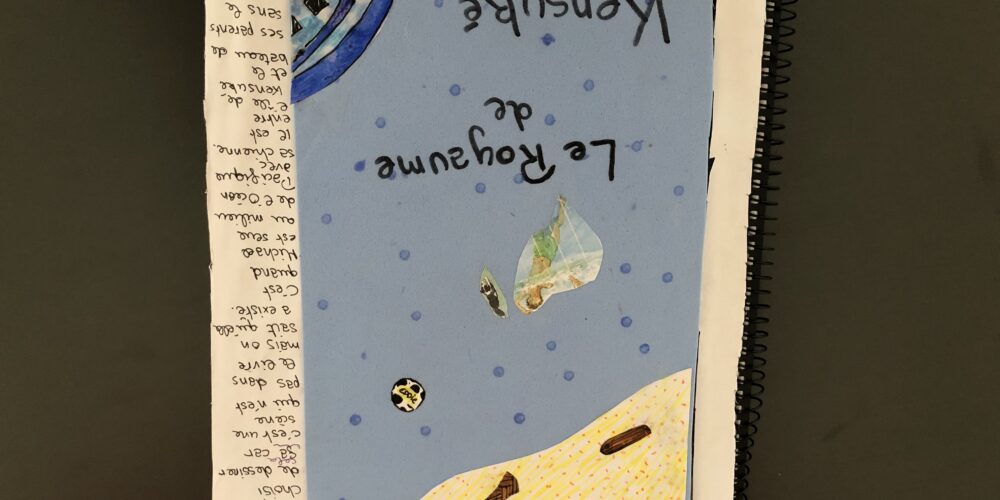 Le Royaume
de
Kensuké
choisi
de dessiner
ça car
c'est une
scène
qui n'est
pas dans
le livre
mais on
sait qu'elle
a existé.
C'est
quand
Michael
est seul
au milieu
de l'Océan
Pacifique
avec
sa chienne.
Il est
entre
l'île de
Kensuké
et le
bateau de
ses parents
sans le